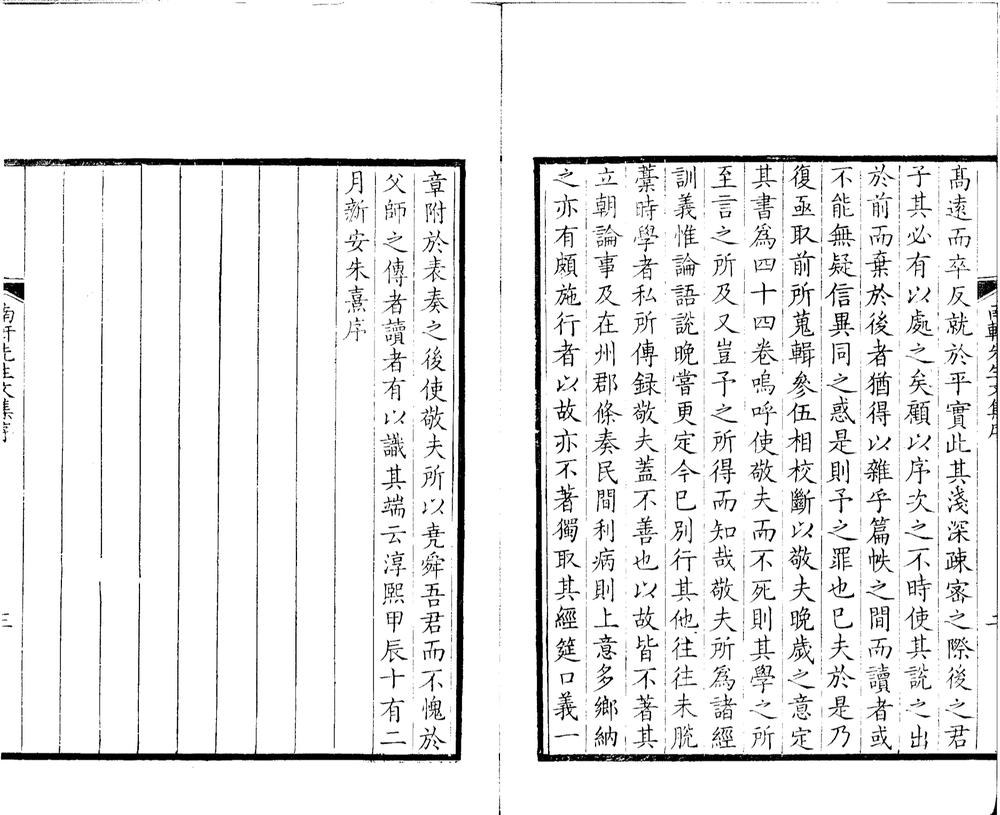 髙遠而卒反就於平實此其淺深疎宻之際後之君
子其必有以處之矣顧以序次之不時使其説之出
於前而棄於後者猶得以雜乎篇帙之間而讀者或
不能無疑信異同之惑是則予之罪也已夫於是乃
復亟取前所蒐輯參伍相校斷以敬夫晚歲之意定
其書爲四十四卷嗚呼使敬夫而不死則其學之所
至言之所及又豈予之所得而知哉敬夫所爲諸經
訓義惟論語説晚嘗更定今已别行其他往往未脱
藁時學者私所傳録敬夫蓋不善也以故皆不著其
立朝論事及在州郡條奏民間利病則上意多鄉納
之亦有頗施行者以故亦不著獨取其經筵口義一
南軒先生文集序
二
章附於表奏之後使敬夫所以堯舜吾君而不愧於
父師之傳者讀者有以識其端云淳熙甲辰十有二
月新安朱熹序
南軒先生文集序
三